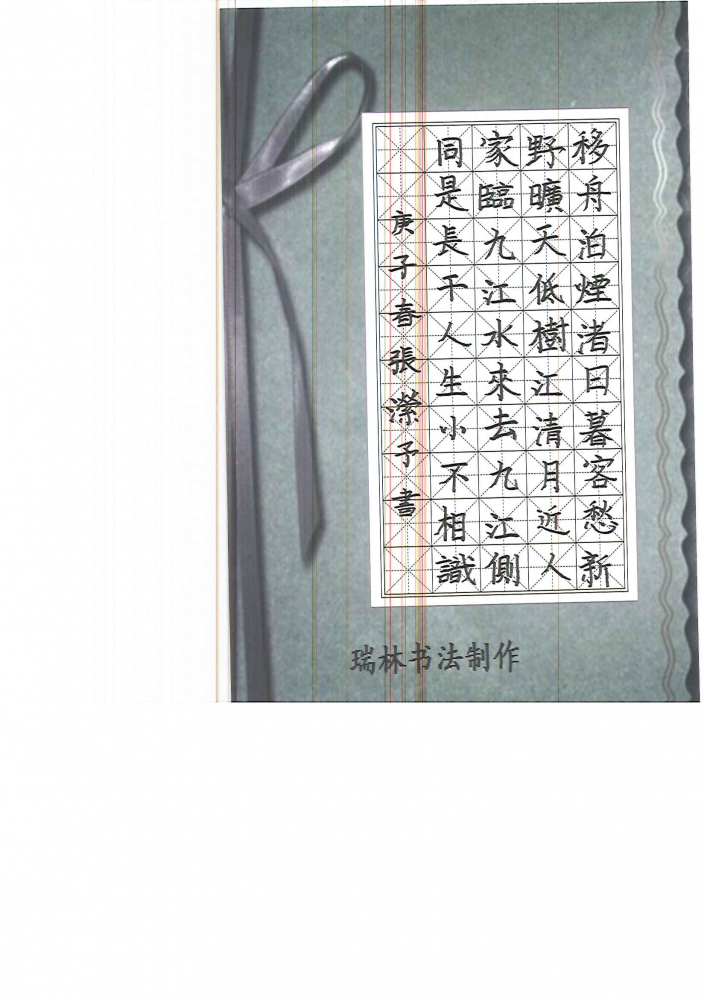 移舟泊煙渚日暮客愁新
野曠天低樹江清月近人
家臨九江水來去九江側
同是長干人生小不相識
庚子春張瀠予書
瑞林书法制作